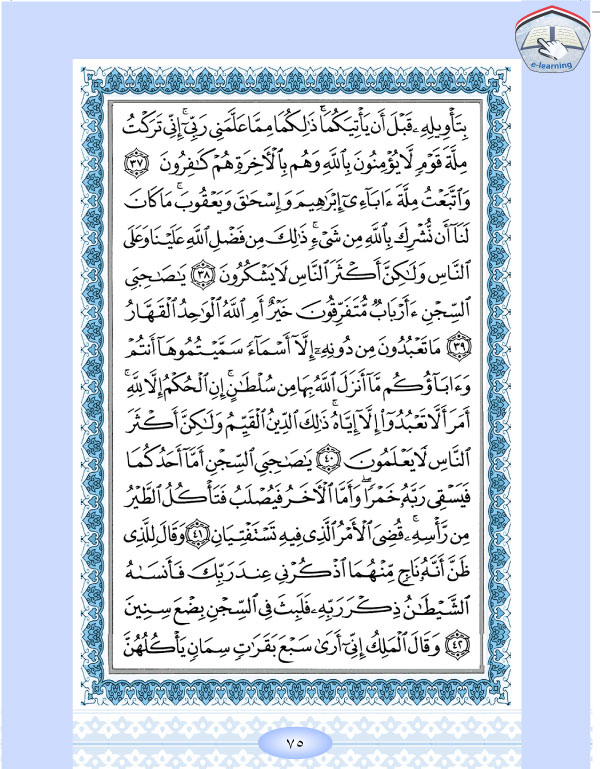 e-learning
بِتَأْوِيلِهِۦ قَبْلَ أَن يَأْتِيَكُمَا ۚ ذَٰلِكُمَا مِمَّا عَلَّمَنِى رَبِّىٓ ۚ إِنِّى تَرَكْتُ
مِلَّةَ قَوْمٍ لَّا يُؤْمِنُونَ بِٱللَّهِ وَهُم بِٱلْأَخِرَةِ هُمْ كَٰفِرُونَ ﴿٣٧﴾
وَٱتَّبَعْتُ مِلَّةَ ءَابَآءِىٓ إِبْرَٰهِيمَ وَإِسْحَٰقَ وَيَعْقُوبَ ۚ مَا كَانَ
لَنَآ أَن نُّشْرِكَ بِٱللَّهِ مِن شَىْءٍ ۚ ذَٰلِكَ مِن فَضْلِ ٱللَّهِ عَلَيْنَا وَعَلَى
ٱلنَّاسِ وَلَٰكِنَّ أَكْثَرَ ٱلنَّاسِ لَا يَشْكُرُونَ ﴿٣٨﴾ يَٰصَٰحِبَىِ
ٱلسِّجْنِ ءَأَرْبَابٌ مُّتَفَرِّقُونَ خَيْرٌ أَمِ ٱللَّهُ ٱلْوَٰحِدُ ٱلْقَهَّارُ
﴿٣٩﴾ مَا تَعْبُدُونَ مِن دُونِهِۦٓ إِلَّآ أَسْمَآءً سَمَّيْتُمُوهَآ أَنتُمْ
وَءَابَآؤُكُم مَّآ أَنزَلَ ٱللَّهُ بِهَا مِن سُلْطَٰنٍ ۚ إِنِ ٱلْحُكْمُ إِلَّا لِلَّهِ ۚ
أَمَرَ أَلَّا تَعْبُدُوٓا۟ إِلَّآ إِيَّاهُ ۚ ذَٰلِكَ ٱلدِّينُ ٱلْقَيِّمُ وَلَٰكِنَّ أَكْثَرَ
ٱلنَّاسِ لَا يَعْلَمُونَ ﴿٤٠﴾ يَٰصَٰحِبَىِ ٱلسِّجْنِ أَمَّآ أَحَدُكُمَا
فَيَسْقِى رَبَّهُۥ خَمْرًا ۖ وَأَمَّا ٱلْأَخَرُ فَيُصْلَبُ فَتَأْكُلُ ٱلطَّيْرُ
مِن رَّأْسِهِۦ ۚ قُضِىَ ٱلْأَمْرُ ٱلَّذِى فِيهِ تَسْتَفْتِيَانِ ﴿٤١﴾ وَقَالَ لِلَّذِى
ظَنَّ أَنَّهُۥ نَاجٍ مِّنْهُمَا ٱذْكُرْنِى عِندَ رَبِّكَ فَأَنسَىٰهُ
ٱلشَّيْطَٰنُ ذِكْرَ رَبِّهِۦ فَلَبِثَ فِى ٱلسِّجْنِ بِضْعَ سِنِينَ
﴿٤٢﴾ وَقَالَ ٱلْمَلِكُ إِنِّىٓ أَرَىٰ سَبْعَ بَقَرَٰتٍ سِمَانٍ يَأْكُلُهُنَّ
٧٥